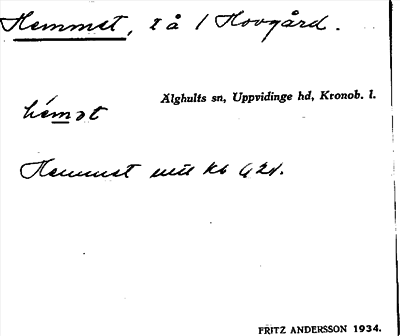 Hemmet, t å / Hovgård.
Älghults sn, Uppvidinge hd, Kronob. l.
hémət
Hemmet
FRITZ ANDERSSON 1934.